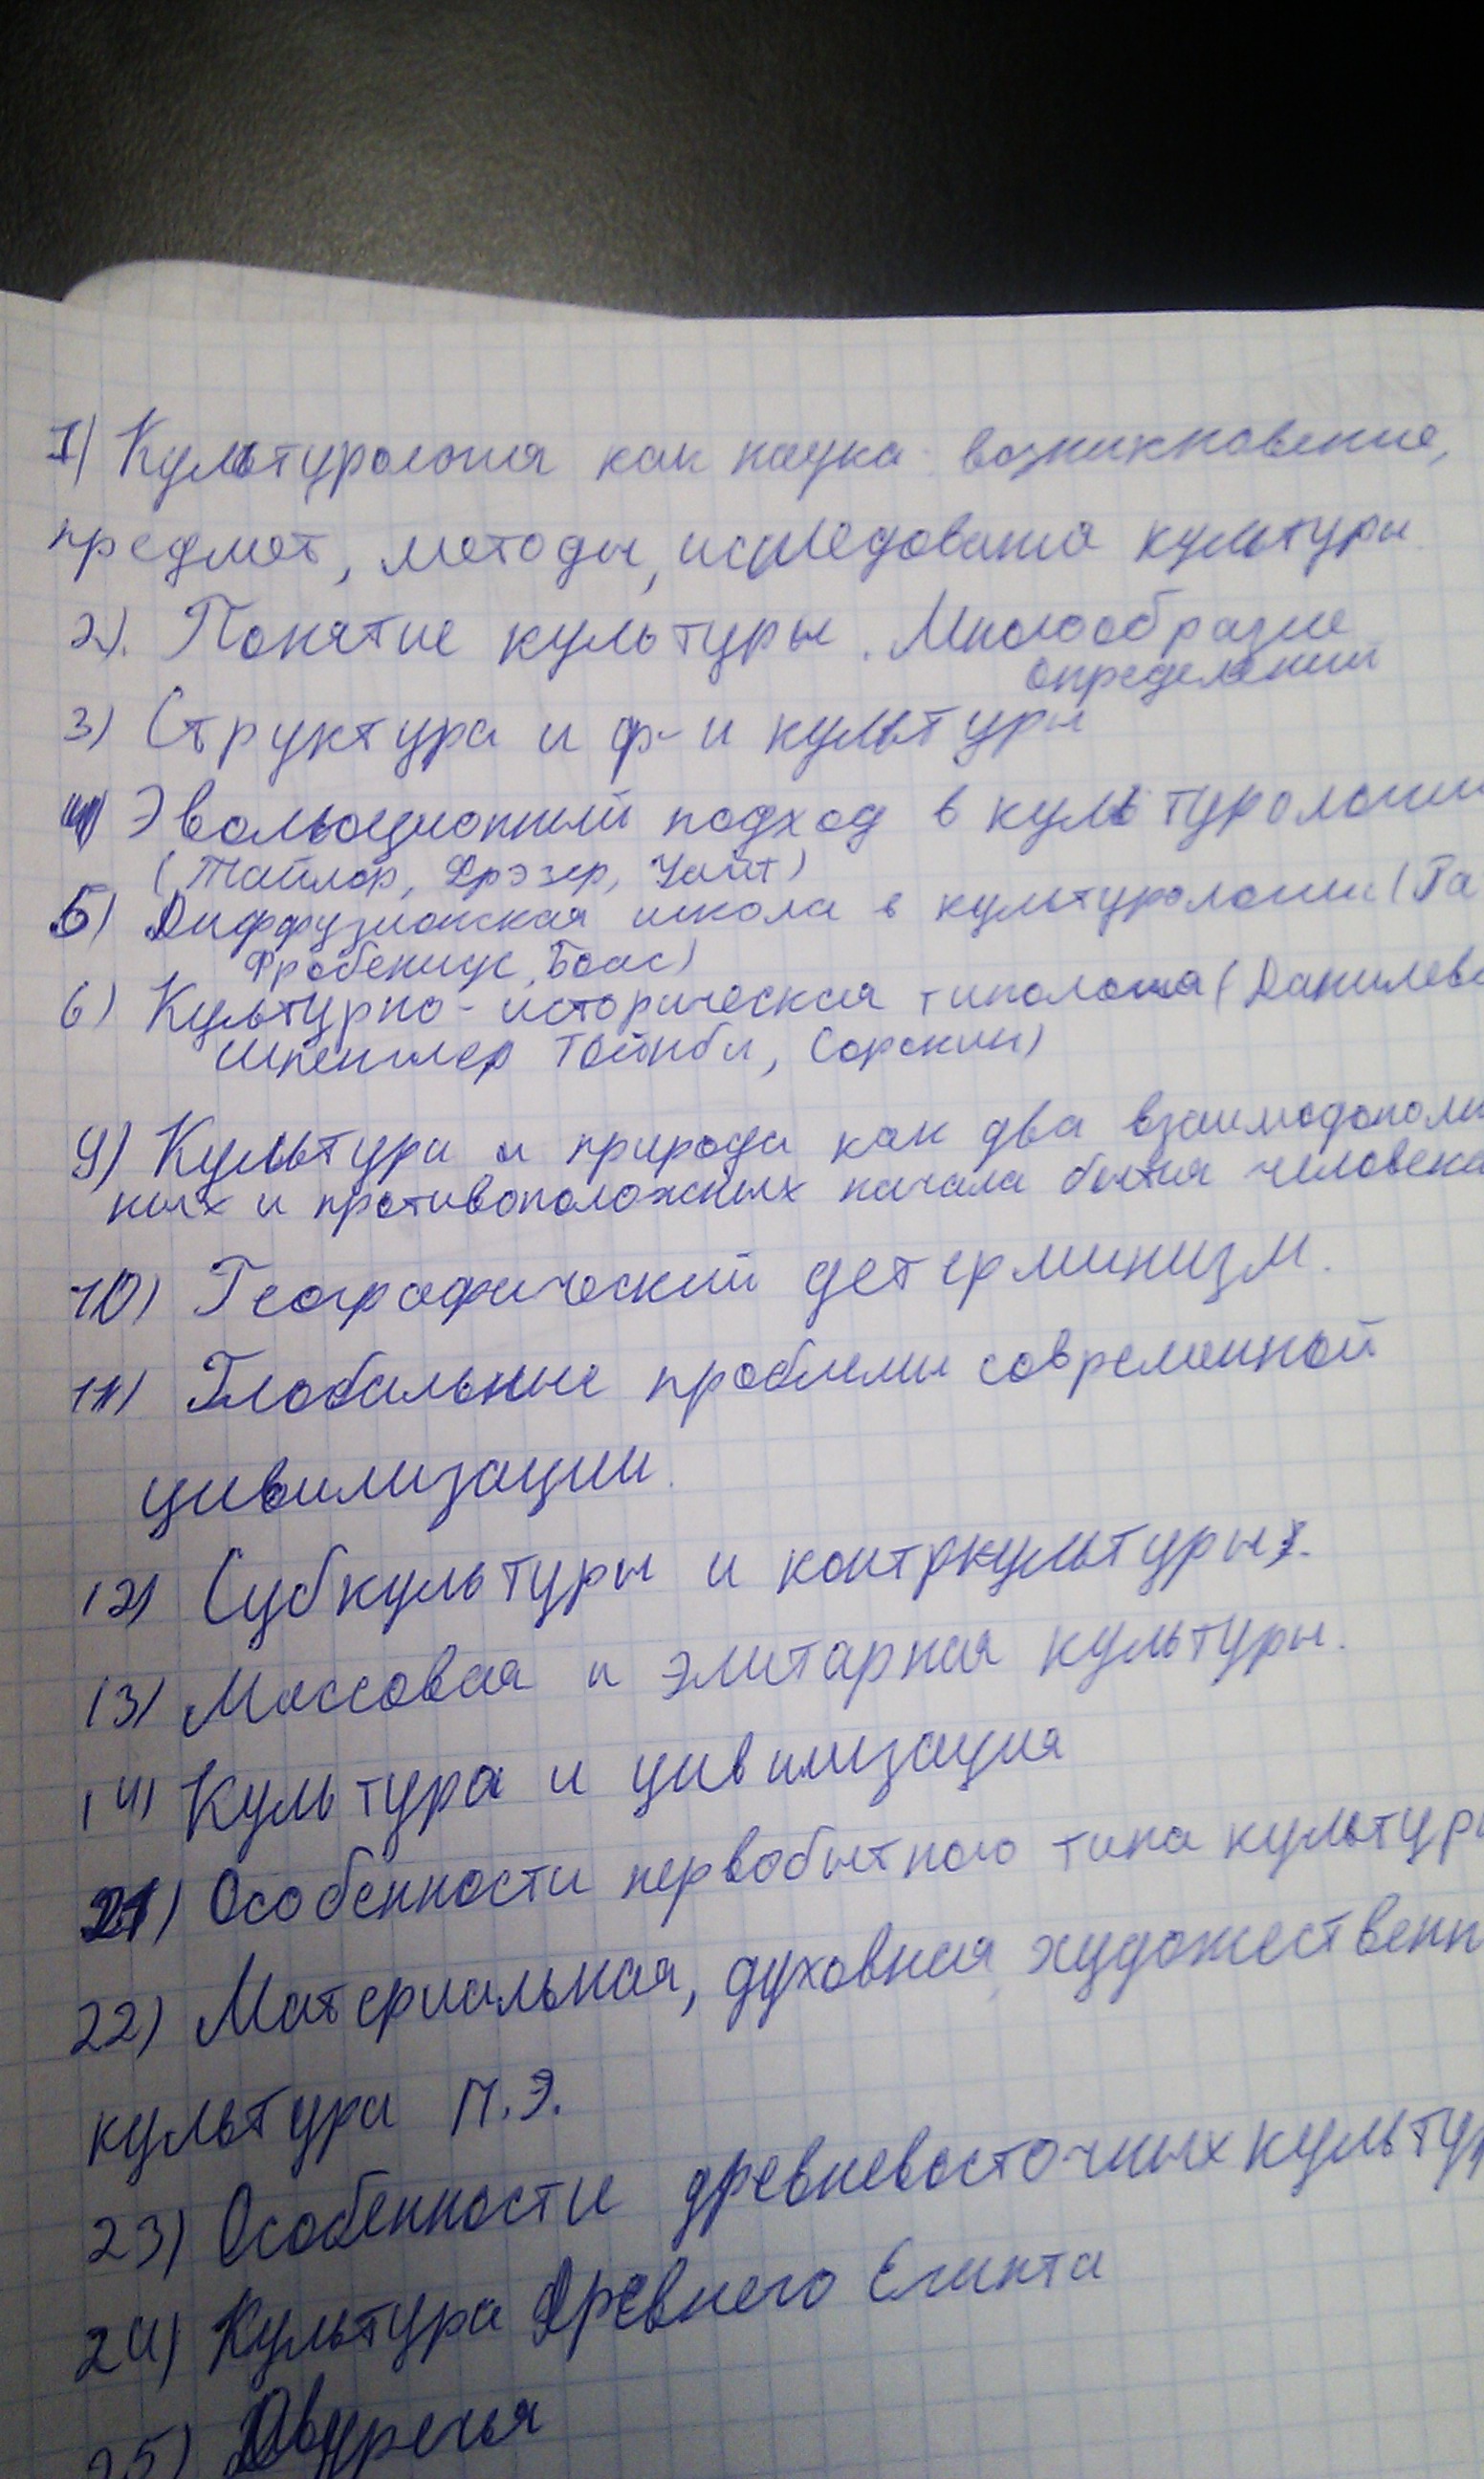 1) Культурология как наука: возникновение,
предмет, методы, исследования культуры.
2). Понятие культуры. Многообразие
определений
3) Структура и ф-и культуры
4) Эвольоционный подход в культурологии
(Тайлор, Фрэзер, Уайт)
5) Диффузионская школа в культурологии (Га
Фробениус, Боас)
6) Культурно-историческая типология (Данилевс
Шпенглер Тойнби, Сорокин)
9) Культура и природа как два взаимодополн
ных и противоположных начала бытия человека
10) Географический детерминизм.
11) Глобальные проблемы современной
цивилизации.
12) Субкультуры и контркультуры.
13) Массовая и элитарная культуры.
14) Культура и цивилизация
21) Особенности первобытного типа культуры
22) Материальная, духовная, художественн
культура П.Э.
23) Особенности древневосточных культур
24) Культура Древнего Египта
25) Двуречья